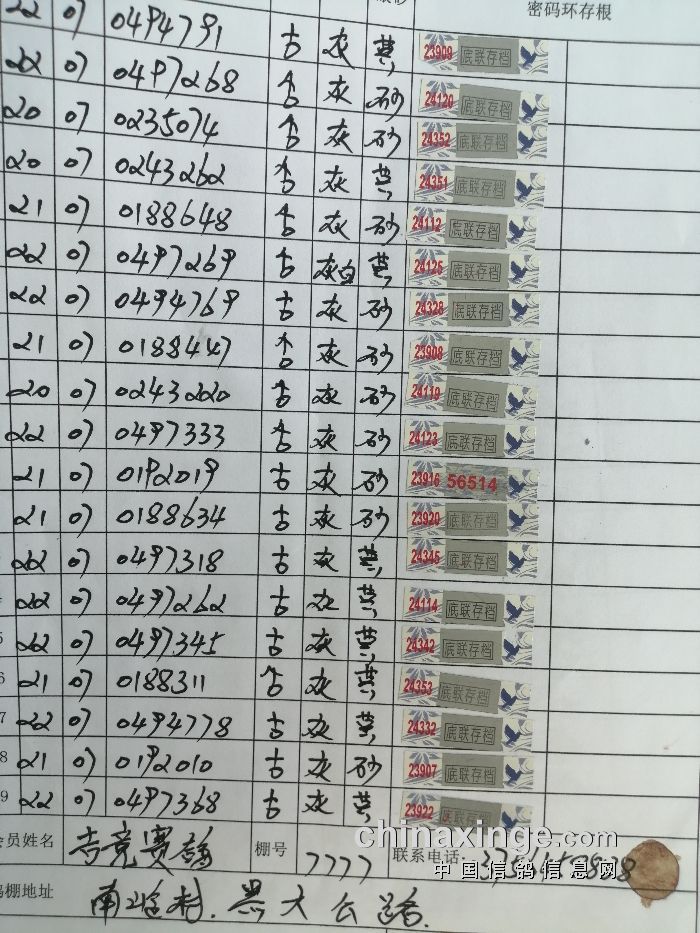 密码环存根
22 07 0494791 灰 黄 23909 底联存档
22 07 0497268 灰 砂 24120 底联存档
20 07 0235074 灰 砂 24352 底联存档
20 07 0243262 灰 黄 24351 底联存档
21 07 0188648 灰 砂 24112 底联存档
22 07 0497269 灰白 黄 24125 底联存档
22 07 0494769 灰 砂 24328 底联存档
21 07 0188447 灰 砂 23908 底联存档
20 07 0243220 灰 砂 24119 底联存档
22 07 0497333 灰 砂 24123 底联存档
21 07 0192019 灰 砂 23916 56514
21 07 0188634 灰 砂 23920 底联存档
22 07 0497318 灰 黄 24345 底联存档
22 07 0497262 灰 黄 24114 底联存档
22 07 0497345 灰 黄 24342 底联存档
21 07 0188311 灰 黄 24353 底联存档
22 07 0494778 灰 黄 24332 底联存档
21 07 0192010 灰 砂 23907 底联存档
9 22 07 0497368 灰 黄 23922 底联存档
会员姓名 竞赛 棚号 7777 联系电话
chinaxinge.com
中国信鸽信息网
鸽棚地址 南 村. 黑大公路.